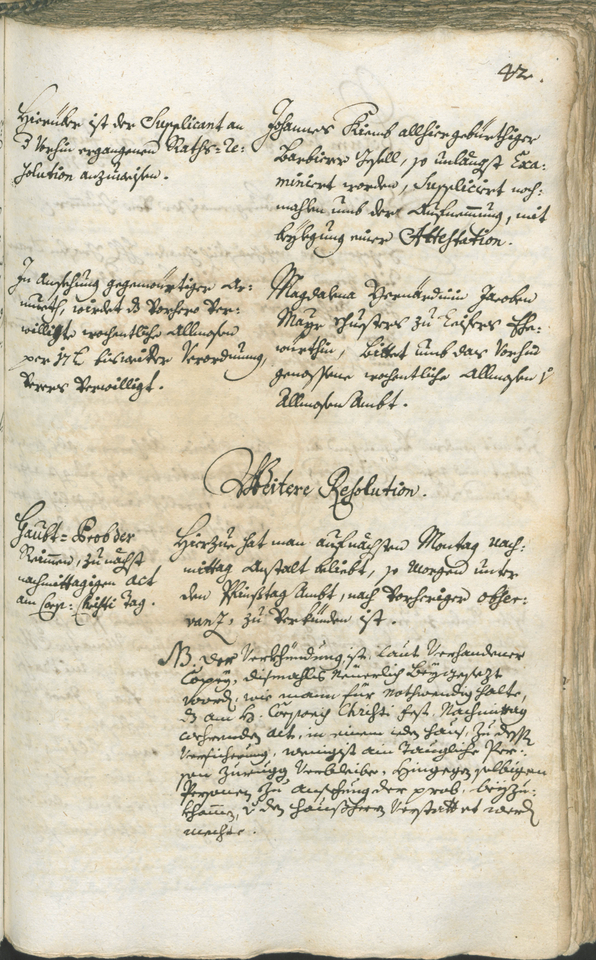 42.
Hierüber ist der Supplicant an
d Vorhin ergangenen Raths=Re=
solution anzuweisen.
Johannes Kiemb allhier gebürthiger
Barbierer Gsell, so unlängst Exa=
miniert worden, Suppliciert noch=
mahlen umb der Aufnemmung, mit
beylegung einer Attestation.
In Ansehung gegenwürtiger Ar=
mueth, wirdet ds Vorhero Ver=
willigte wochentliche Allmosen
per 17 bis weiter Verordnung,
Verwilligt.
Magdalena Bernardinin Jacoben
Mayr Schusters zu Leifers Ehe=
würthin, bittet umb das Vorhin
genossene wochentliche Allmosen
Allmosen Ambt.
Weitere Resolution.
Haubt=Prob der
Reimmen, zu nächst
nachmittagigen Act
am Corp: Christi Tag.
Hierzue hat man auf nächsten Montag nach=
mittag Anstalt beliebt, so morgend unter
den Pfinstag Ambt, nach Vorheriger obser=
vanz, zu Verkünden ist.
NB. Der Verkhündung ist laut Verhandener
Copey, dismahls Neuerlich beygesezt
word, wie mann für nothwendig halte,
ds am H. Corporis Christi fest, Nachmittag
wehrenden Act, in einem Haus, zu dess
Versicherung, wenigist ain taugliche Per=
son zurugg Verbleibe, hingegen selbigen
Persohnen zu ansehung der prob, beyzu=
khommen, den Haußherrn Verstattet werd
mechte.